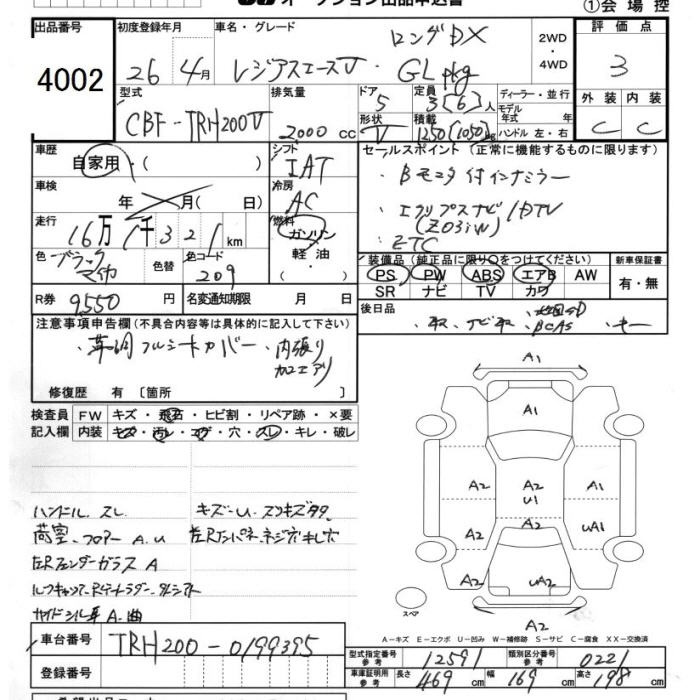 オークション出品申込書
①会場控
出品番号
4002
初度登録年月
26 4月
車名・グレード
ロングDX
レジアスエースV・GL pkg
2WD・4WD
評価点
3
外装 内装
C C
型式
CBF-TRH200V
排気量
2000 cc
ドア
5
形状
V
定員
3(6)人
積載
1250(1050)kg
ディーラー・並行
モデル年式 年式
ハンドル 左・右
車歴
自家用・( )
シフト
IAT
車検
年 月( 日)
冷房
AC
走行
16万1千321km
燃料
ガソリン
軽油・
色
ブラックマイカ
色替
色コード
209
R券
9550円
名変通知期限 月 日
セールスポイント(正常に機能するものに限ります)
・Bモニタ付インナミラー
・エクリプスナビ/DTV
(Z03iW)
・ETC
装備品(純正品に限り○をつけてください)
PS PW ABS エアB AW
SR ナビ TV カワ
新車保証書
有・無
後日品
注意事項申告欄(不具合内容等は具体的に記入して下さい)
・革調フルシートカバー ・内張り
加工アリ
修復歴 有〔箇所 〕
検査員記入欄
FW キズ・飛石・ヒビ割・リペア跡・×要
内装 キズ・汚レ・コゲ・穴・スレ・キレ・破レ
ハンドル スレ
キズ・U スリキズ多々
荷室、フロアー A.U
A1
A1
A2 A2 A2
U1
A2 A2 UA1
A2 UA2
A2
スペア
A-キズ E-エクボ U-凹み W-補修跡 S-サビ C-腐食 XX-交換済
車台番号
TRH200-0199395
登録番号
型式指定番号 参考
12591
類別区分番号 参考
0221
車庫証明用 参考
長さ 469 cm 幅 169 cm 高さ 198 cm